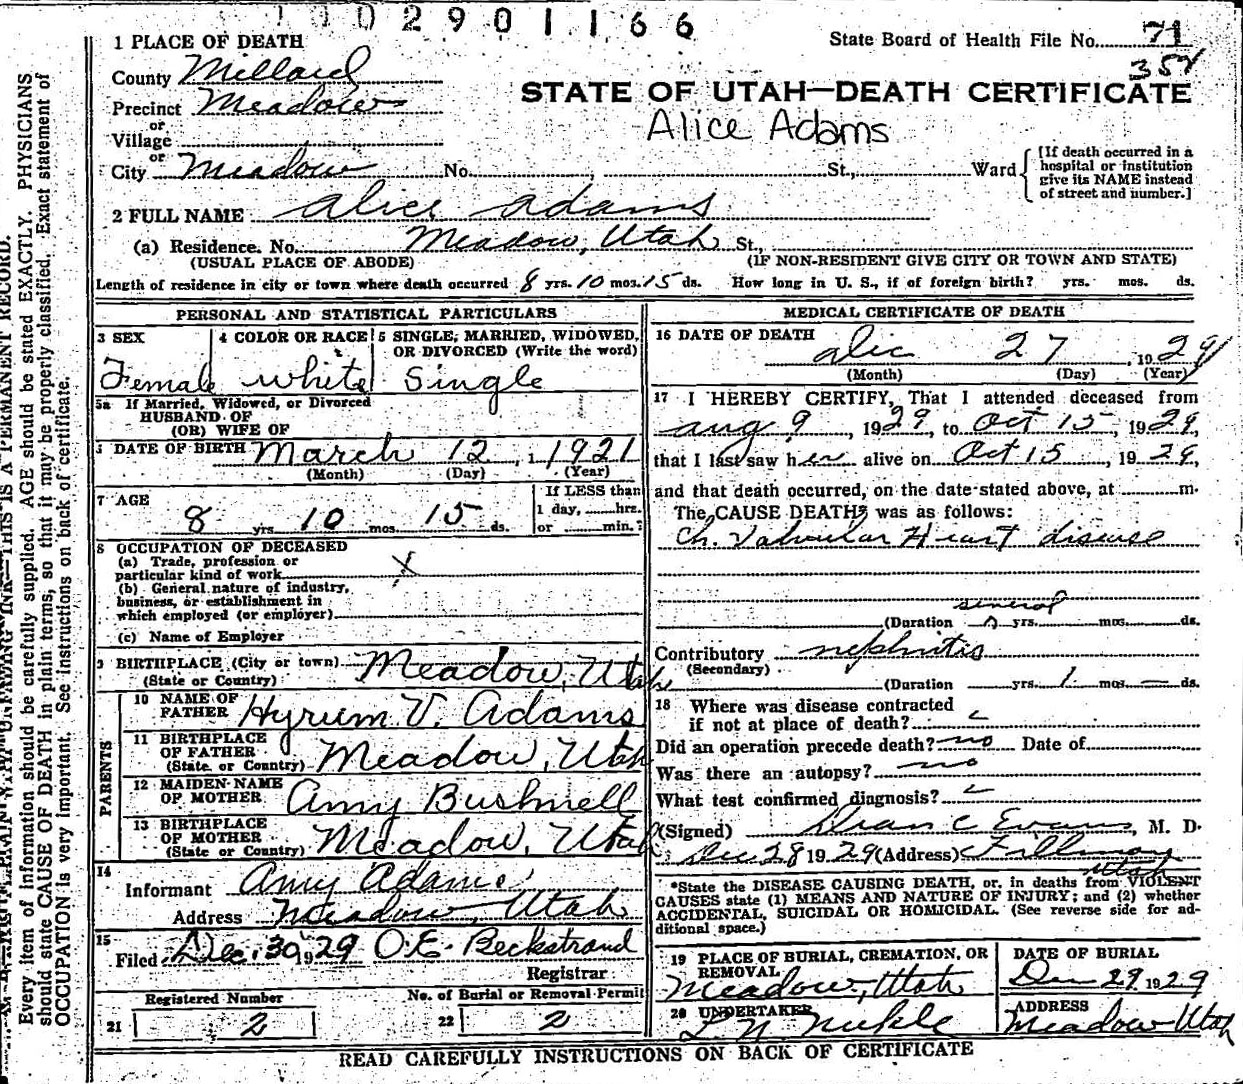 1002901166
State Board of Health File No. 71
354
1 PLACE OF DEATH
County Millard
Precinct Meadow
or
Village
or
City Meadow No. St., Ward
STATE OF UTAH—DEATH CERTIFICATE
Alice Adams
[If death occurred in a
hospital or institution
give its NAME instead
of street and number.]
2 FULL NAME Alice Adams
(a) Residence. No. Meadow, Utah St.,
(USUAL PLACE OF ABODE) (IF NON-RESIDENT GIVE CITY OR TOWN AND STATE)
Length of residence in city or town where death occurred 8 yrs. 10 mos. 15 ds. How long in U. S., if of foreign birth? yrs. mos. ds.
PERSONAL AND STATISTICAL PARTICULARS
3 SEX 4 COLOR OR RACE 5 SINGLE, MARRIED, WIDOWED,
OR DIVORCED (Write the word)
Female white Single
5a If Married, Widowed, or Divorced
HUSBAND OF
(OR) WIFE OF
DATE OF BIRTH March 12, 1921
(Month) (Day) (Year)
7 AGE If LESS than
8 yrs 10 mos. 15 ds. 1 day, hrs.
or min.?
8 OCCUPATION OF DECEASED
(a) Trade, profession or
particular kind of work X
(b) General nature of industry,
business, or establishment in
which employed (or employer)
(c) Name of Employer
9 BIRTHPLACE (City or town) Meadow, Utah
(State or Country)
PARENTS
10 NAME OF
FATHER Hyrum V. Adams
11 BIRTHPLACE
OF FATHER
(State or Country) Meadow, Utah
12 MAIDEN NAME
OF MOTHER Amy Bushnell
13 BIRTHPLACE
OF MOTHER
(State or Country) Meadow, Utah
14
Informant Amy Adams
Address Meadow, Utah
15
Filed Dec. 30 1929 O.E. Beckstrand
Registrar
Registered Number No. of Burial or Removal Permit
21 2 22 2
MEDICAL CERTIFICATE OF DEATH
16 DATE OF DEATH
27 1929
(Month) (Day) (Year)
17 I HEREBY CERTIFY, That I attended deceased from
Aug 9, 1929, to Oct 15, 1929,
that I last saw her alive on Oct 15, 1929,
and that death occurred, on the date stated above, at m.
The CAUSE DEATH* was as follows:
Ch. Valvular Heart disease
several
(Duration yrs. mos. ds.
Contributory nephritis
(Secondary)
(Duration yrs. 1 mos. — ds.
18 Where was disease contracted
if not at place of death?
Did an operation precede death? no Date of
Was there an autopsy? no
What test confirmed diagnosis?
(Signed) Dean C Evans, M. D.
Dec 28 1929 (Address) Fillmore
Utah
*State the DISEASE CAUSING DEATH, or, in deaths from VIOLENT
CAUSES state (1) MEANS AND NATURE OF INJURY; and (2) whether
ACCIDENTAL, SUICIDAL OR HOMICIDAL. (See reverse side for ad-
ditional space.)
19 PLACE OF BURIAL, CREMATION, OR
REMOVAL
Meadow, Utah
DATE OF BURIAL
Dec 29 1929
20 UNDERTAKER
L. N.
ADDRESS
Meadow Utah
READ CAREFULLY INSTRUCTIONS ON BACK OF CERTIFICATE
THIS IS A PERMANENT RECORD.
Every item of information should be carefully supplied. AGE should be stated EXACTLY. PHYSICIANS
should state CAUSE OF DEATH in plain terms, so that it may be properly classified. Exact statement of
OCCUPATION is very important. See instructions on back of certificate.